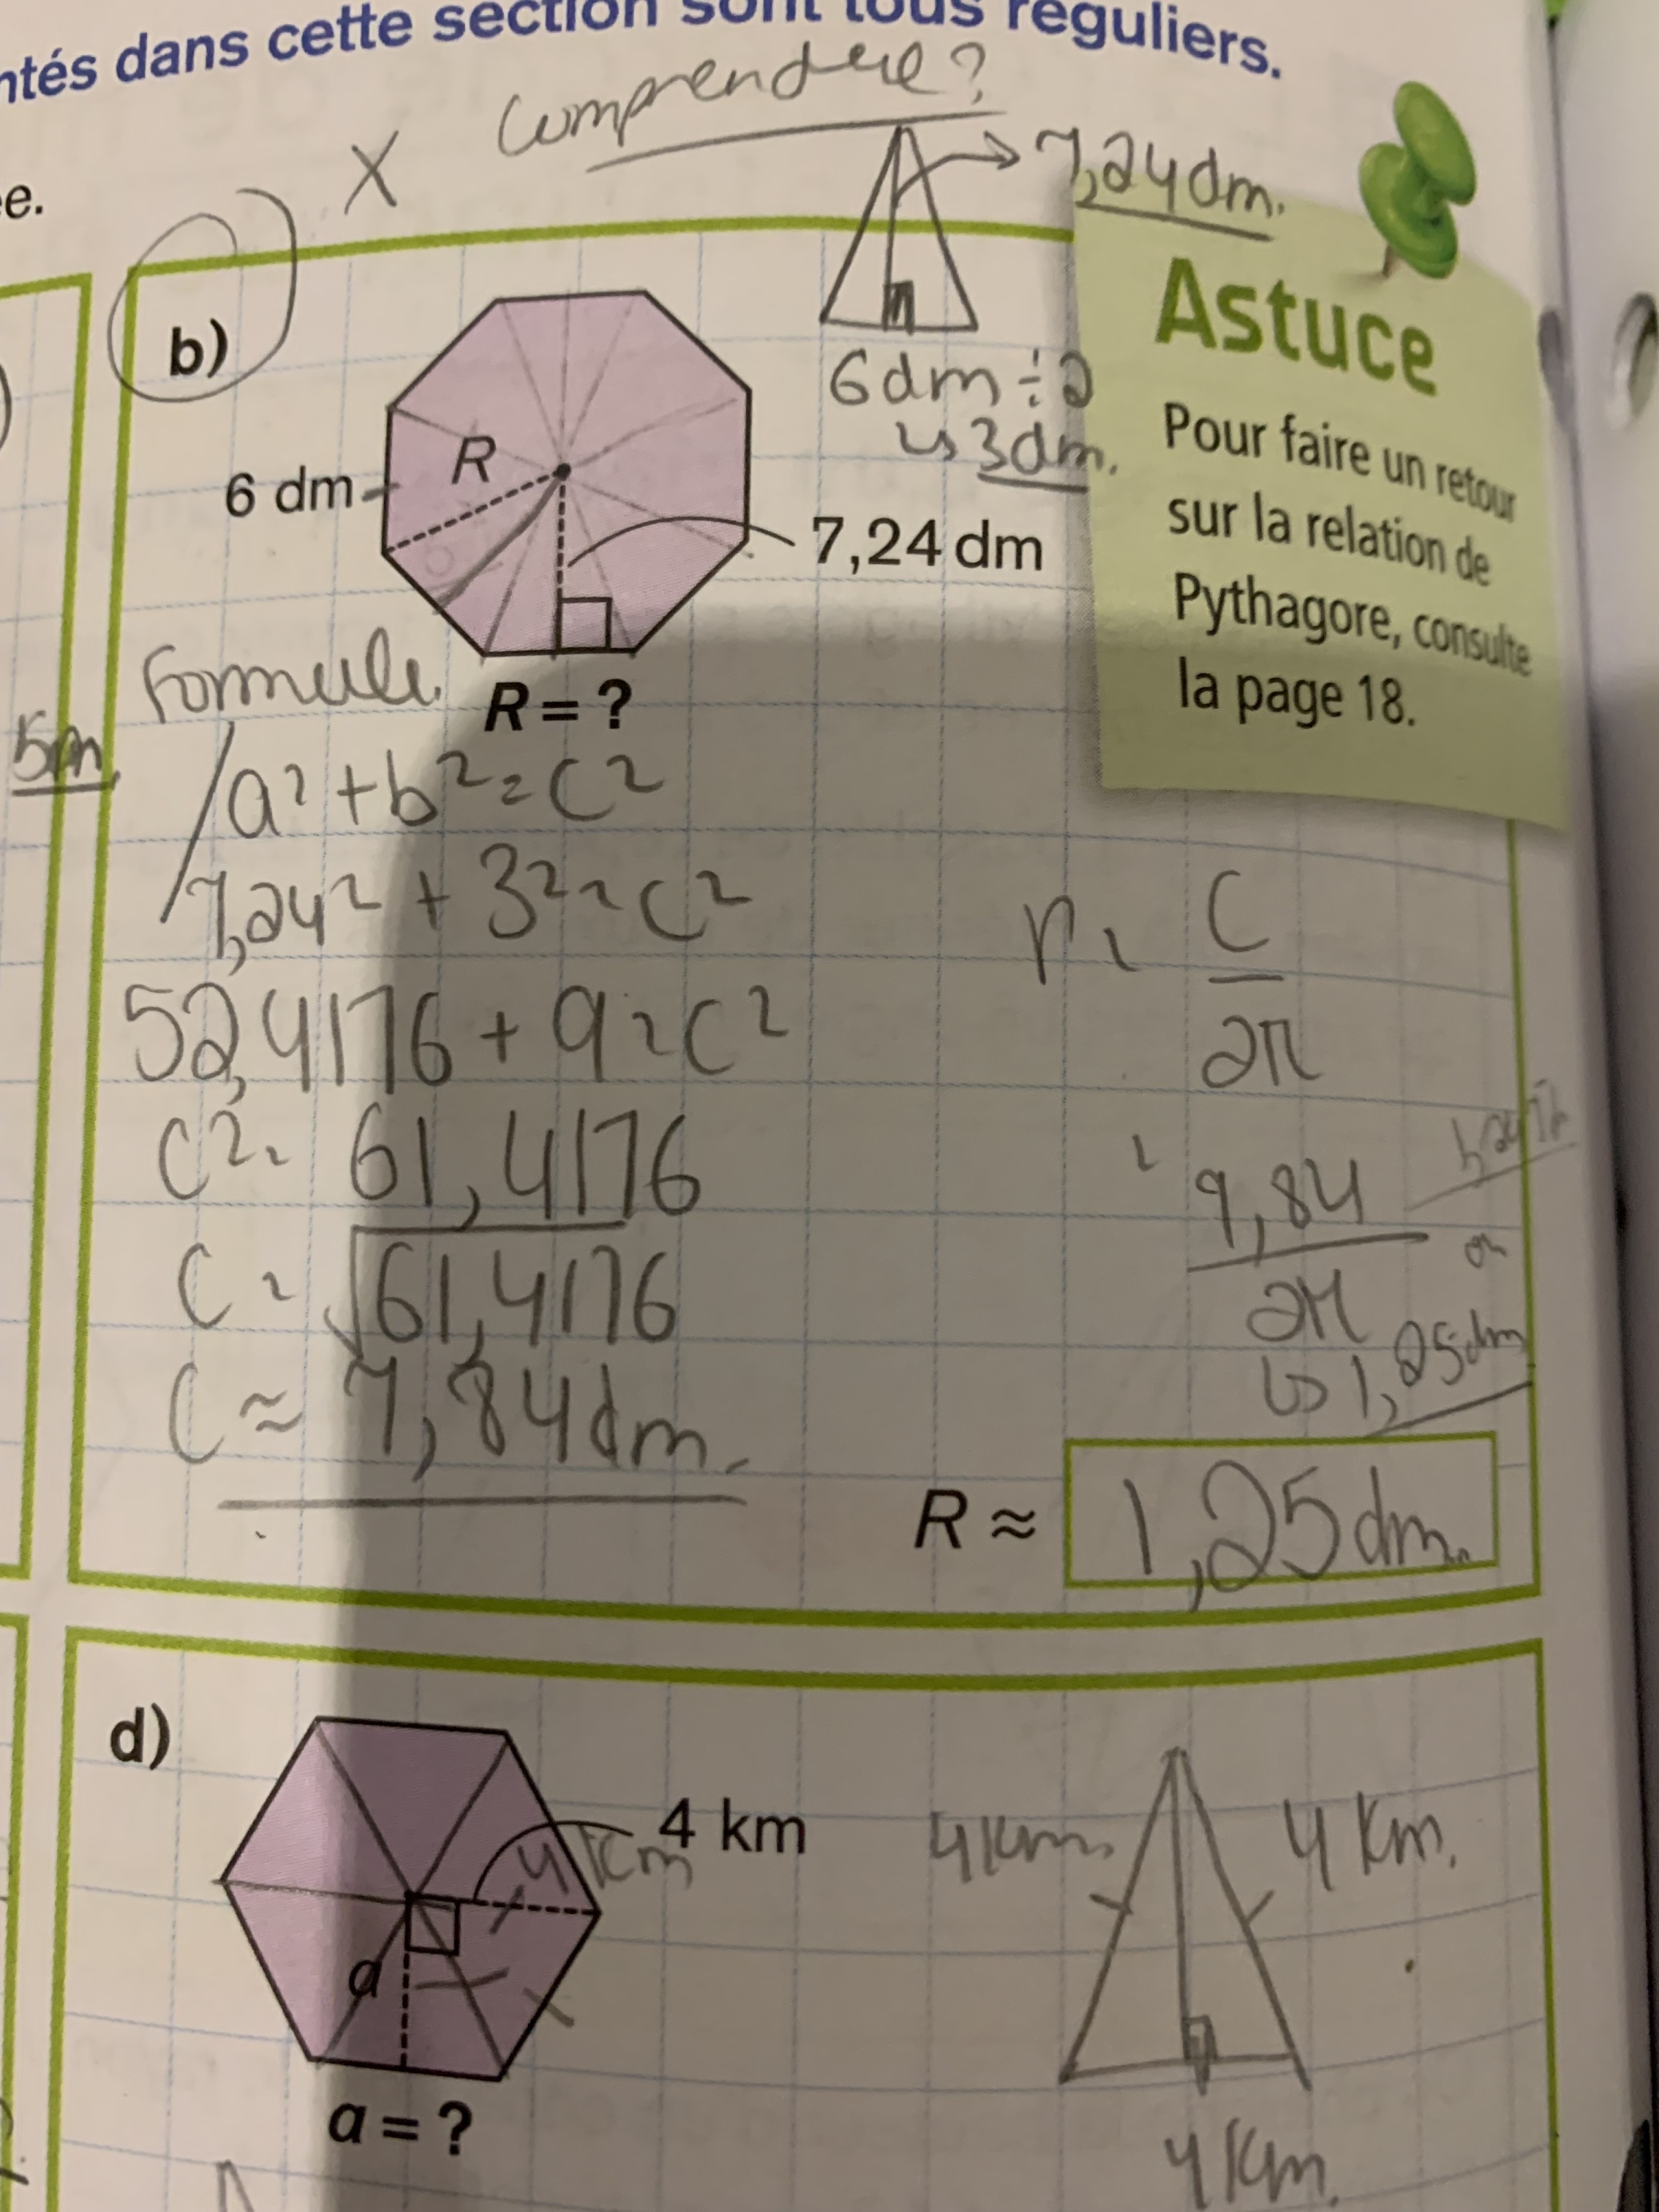 ntés dans cette section sont tous réguliers.
X comprendre?
7,24 dm.
e.
b)
6 dm ÷ 2
↳ 3 dm.
R
6 dm
7,24 dm
R = ?
Astuce
Pour faire un retour
sur la relation de
Pythagore, consulte
la page 18.
Formule
5m
a² + b² = c²
7,24² + 3² = c²
52,4176 + 9 = c²
c² = 61,4176
c = √61,4176
c ≈ 7,84 dm.
r = C
2π
= 9,84
2π
↳ 1,25 dm
R ≈ 1,25 dm.
d)
4 km
4 km
a
a = ?
4 km.
4 km.
4 km.